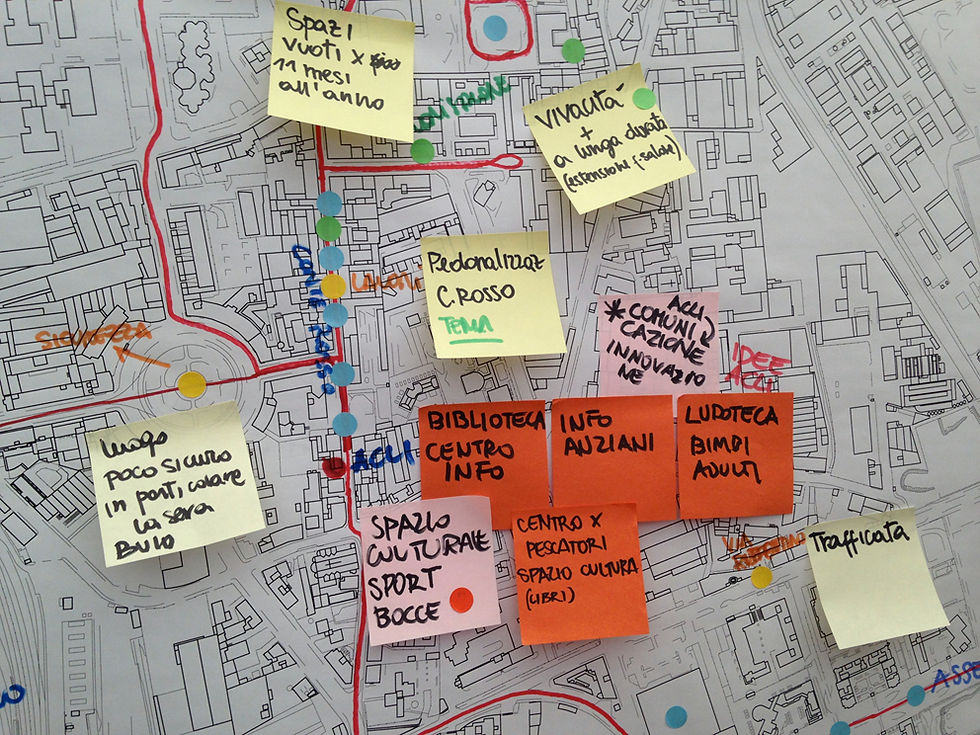 Spazi
vuoti x
11 mesi
all'anno
VIVACITÀ
+
a lunga durata
Pedonalizzaz
C. ROSSO
TEMA
ACLI
* COMUNI
CAZIONE
INNOVAZIO
NE
IDEE
ACLI
SICUREZZA
CONTE ROSSO
luogo
poco sicuro
in particolare
la sera
BUIO
ACLI
BIBLIOTECA
CENTRO
INFO
INFO
ANZIANI
LUDOTECA
BIMBI
ADULTI
SPAZIO
CULTURALE
SPORT
BOCCE
CENTRO X
PESCATORI
SPAZIO CULTURA
(LIBRI)
VIA
Trafficata